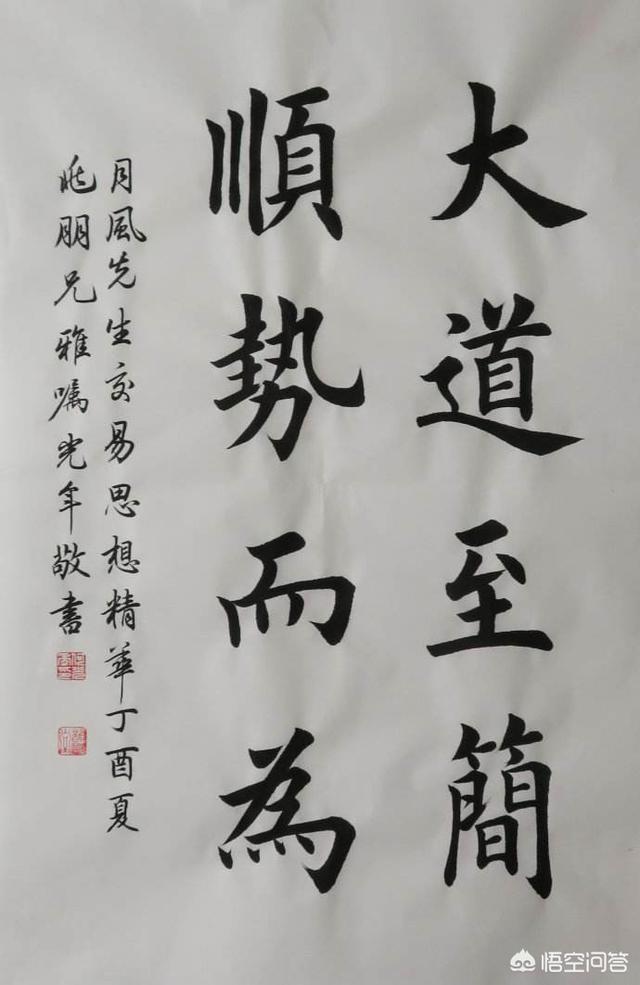 大道至簡
順勢而為
月風先生交易思想精華丁酉夏
兆朋兄雅囑光年敬書
悟空问答